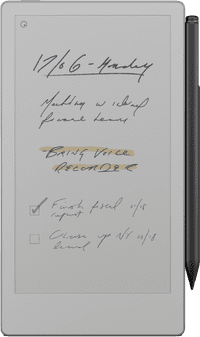 17/06 - Monday
Meeting w
finance team
BRING VOICE
RECORDER
Finish fiscal
report
Close up NY